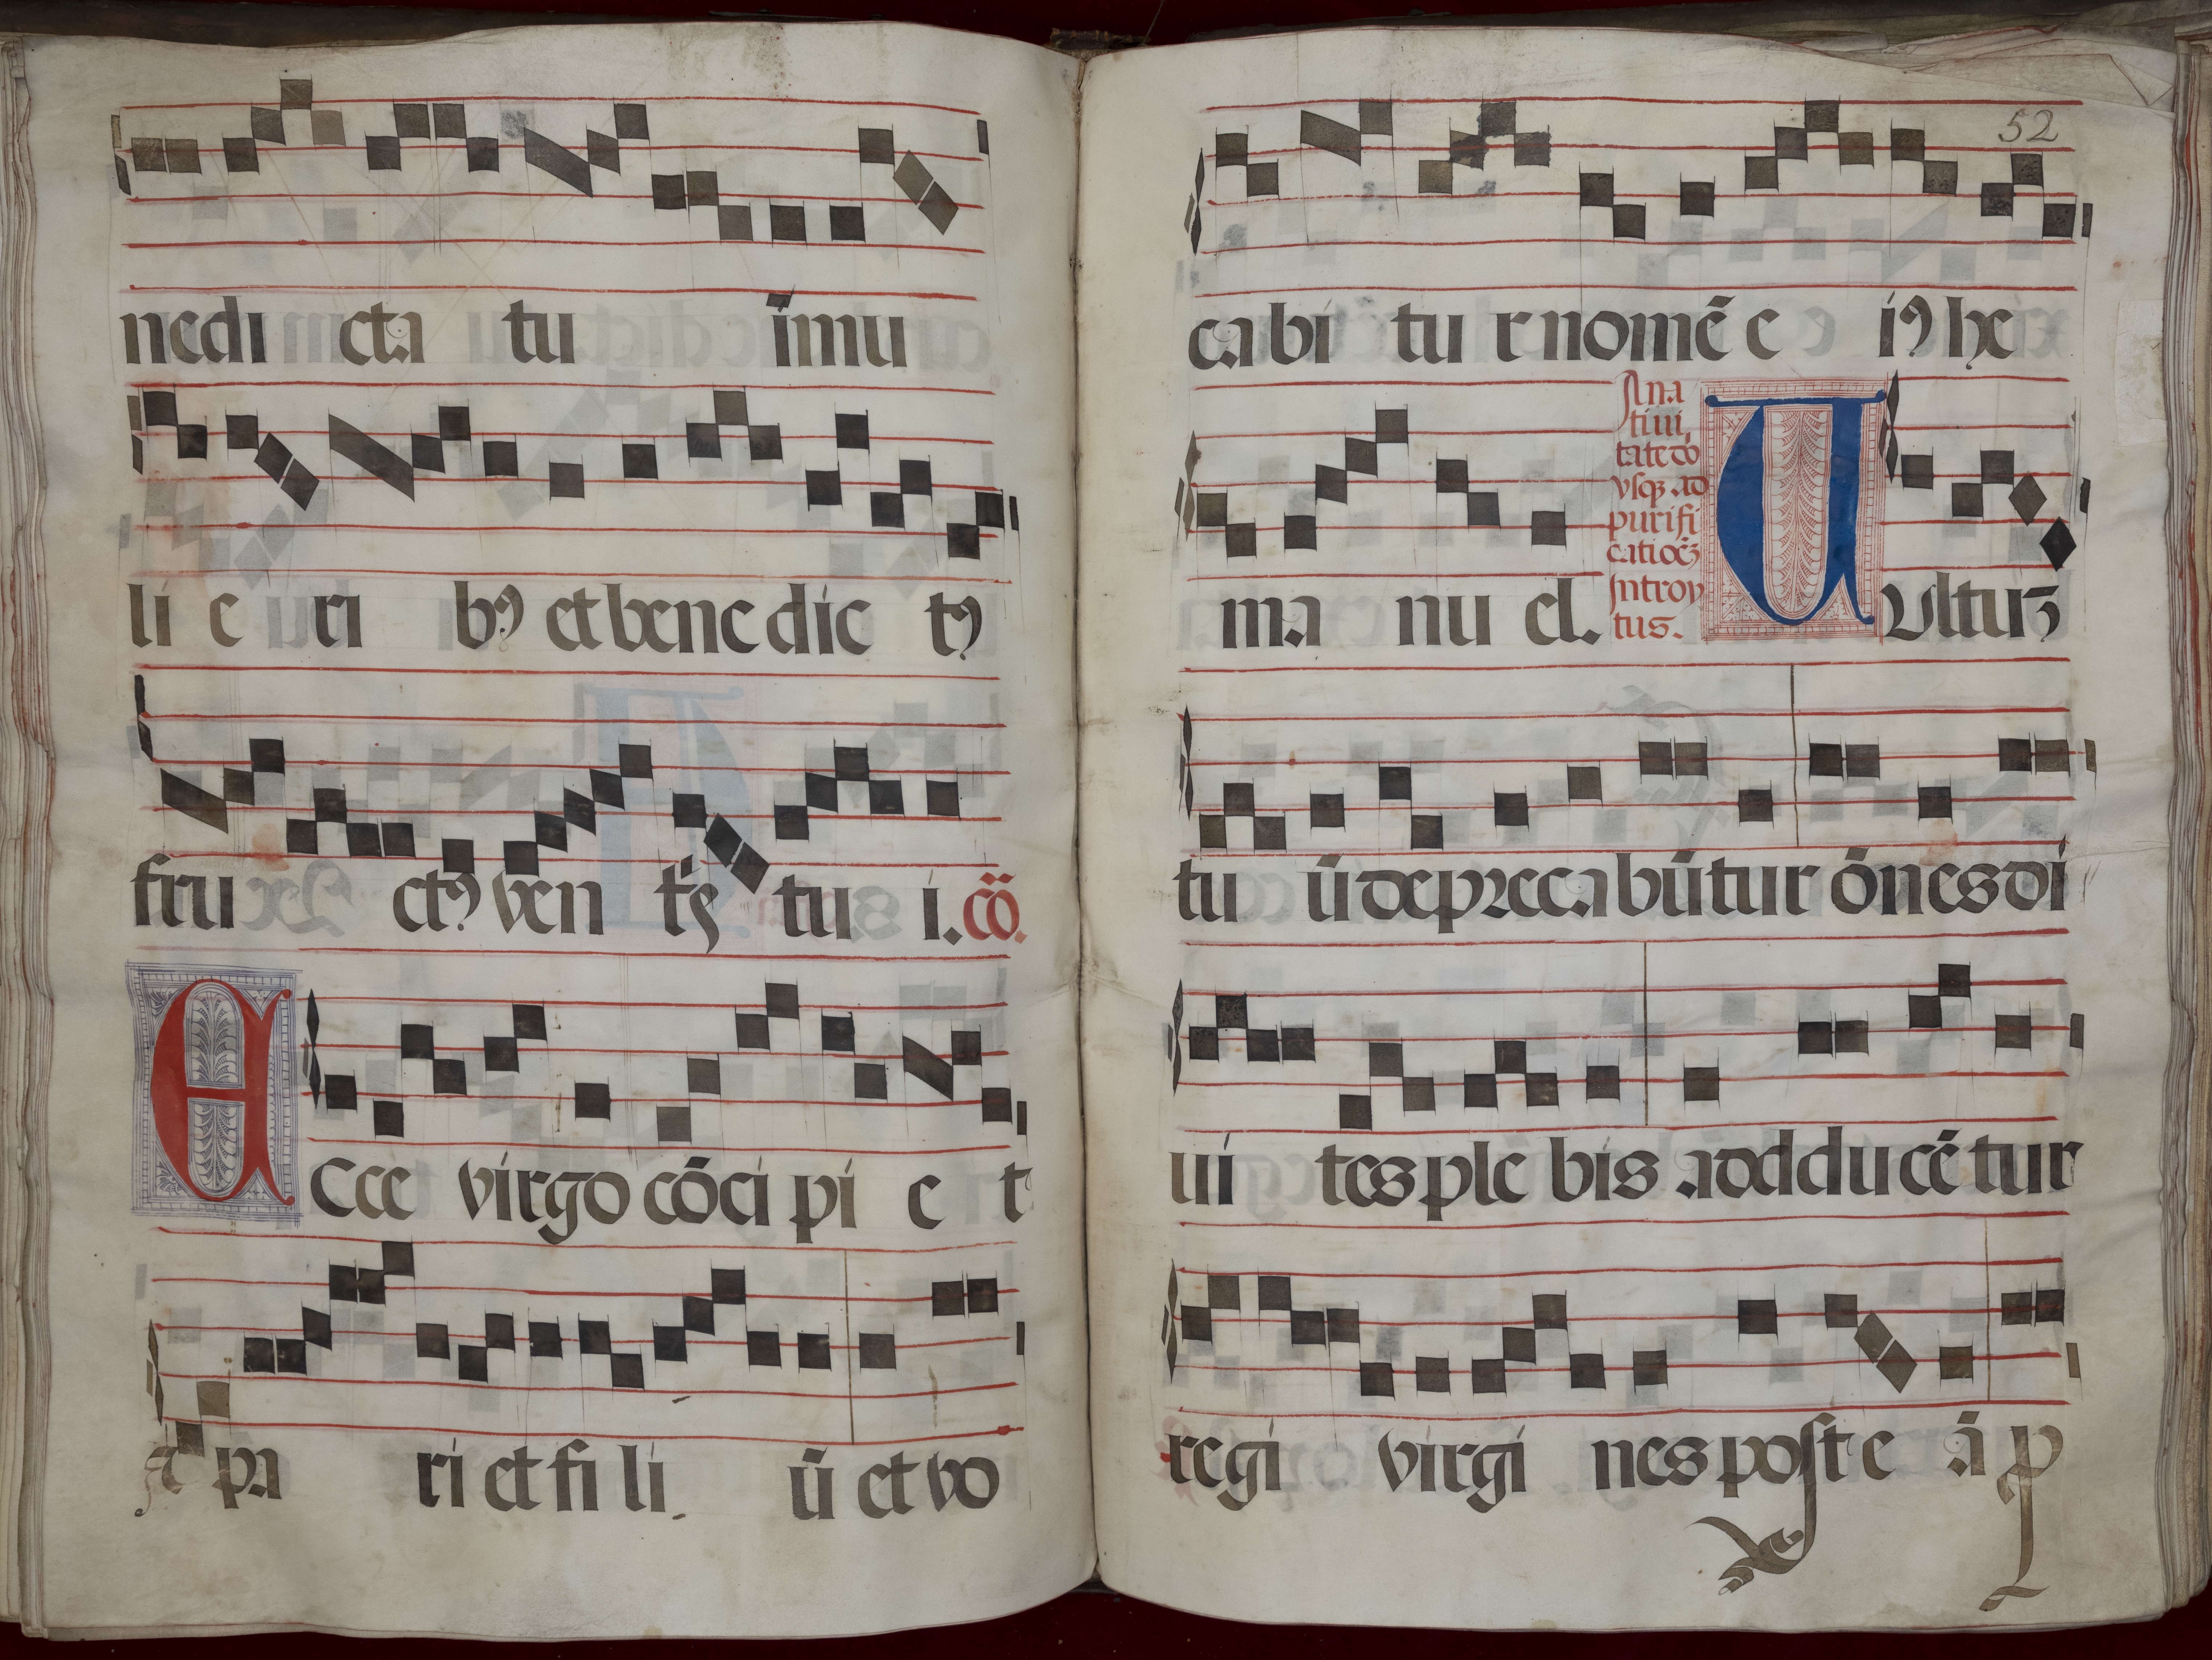 nedi cta tu ĩmu
li e ri bꝰ et bene dic tꝰ
fru ctꝰ ven tꝭ tu i. cõ.
Ecce virgo cõci pi e t
et pa ri et fi li ũ et vo
52
cabi tu r nomẽ e iꝰ he
ma nu el.
A na
tiui
tate do
vsqꝫ ad
purifi
catiōeꝫ
Introy
tus.
Vultuꝫ
tu ũ depreca bũtur õnes di
ui tes ple bis adducẽ tur
regi virgi nes post e ã p